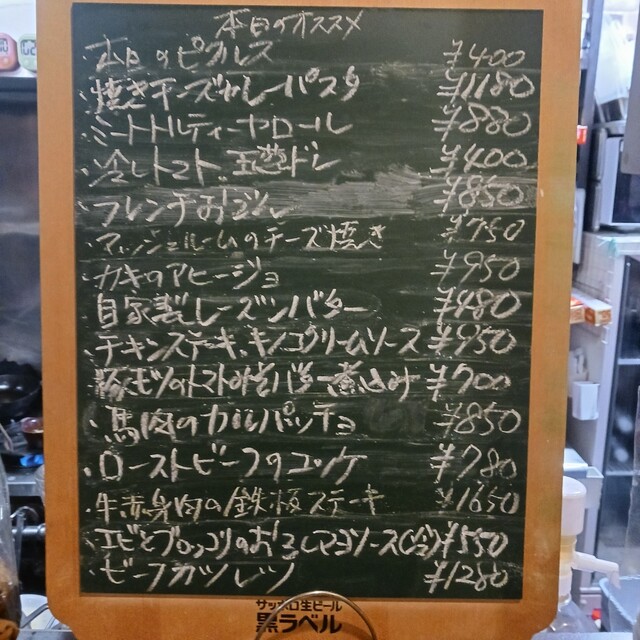 本日のオススメ
・本日のピクルス ¥400
・焼きチーズカレーパスタ ¥1180
・ミートトルティーヤロール ¥880
・冷しトマト ¥400
・フレンチ ¥850
・マッシュルームのチーズ焼き ¥750
・カキのアヒージョ ¥950
・自家製レーズンバター ¥480
・チキンステーキ、キノコクリームソース ¥950
・豚モツのトマトみそバター煮込み ¥700
・馬肉のカルパッチョ ¥850
・ローストビーフのユッケ ¥780
・牛赤身肉の鉄板ステーキ ¥1650
・エビとブロッコリのおろしマヨソース ¥550
・ビーフカツレツ ¥1280
サッポロ生ビール
黒ラベル